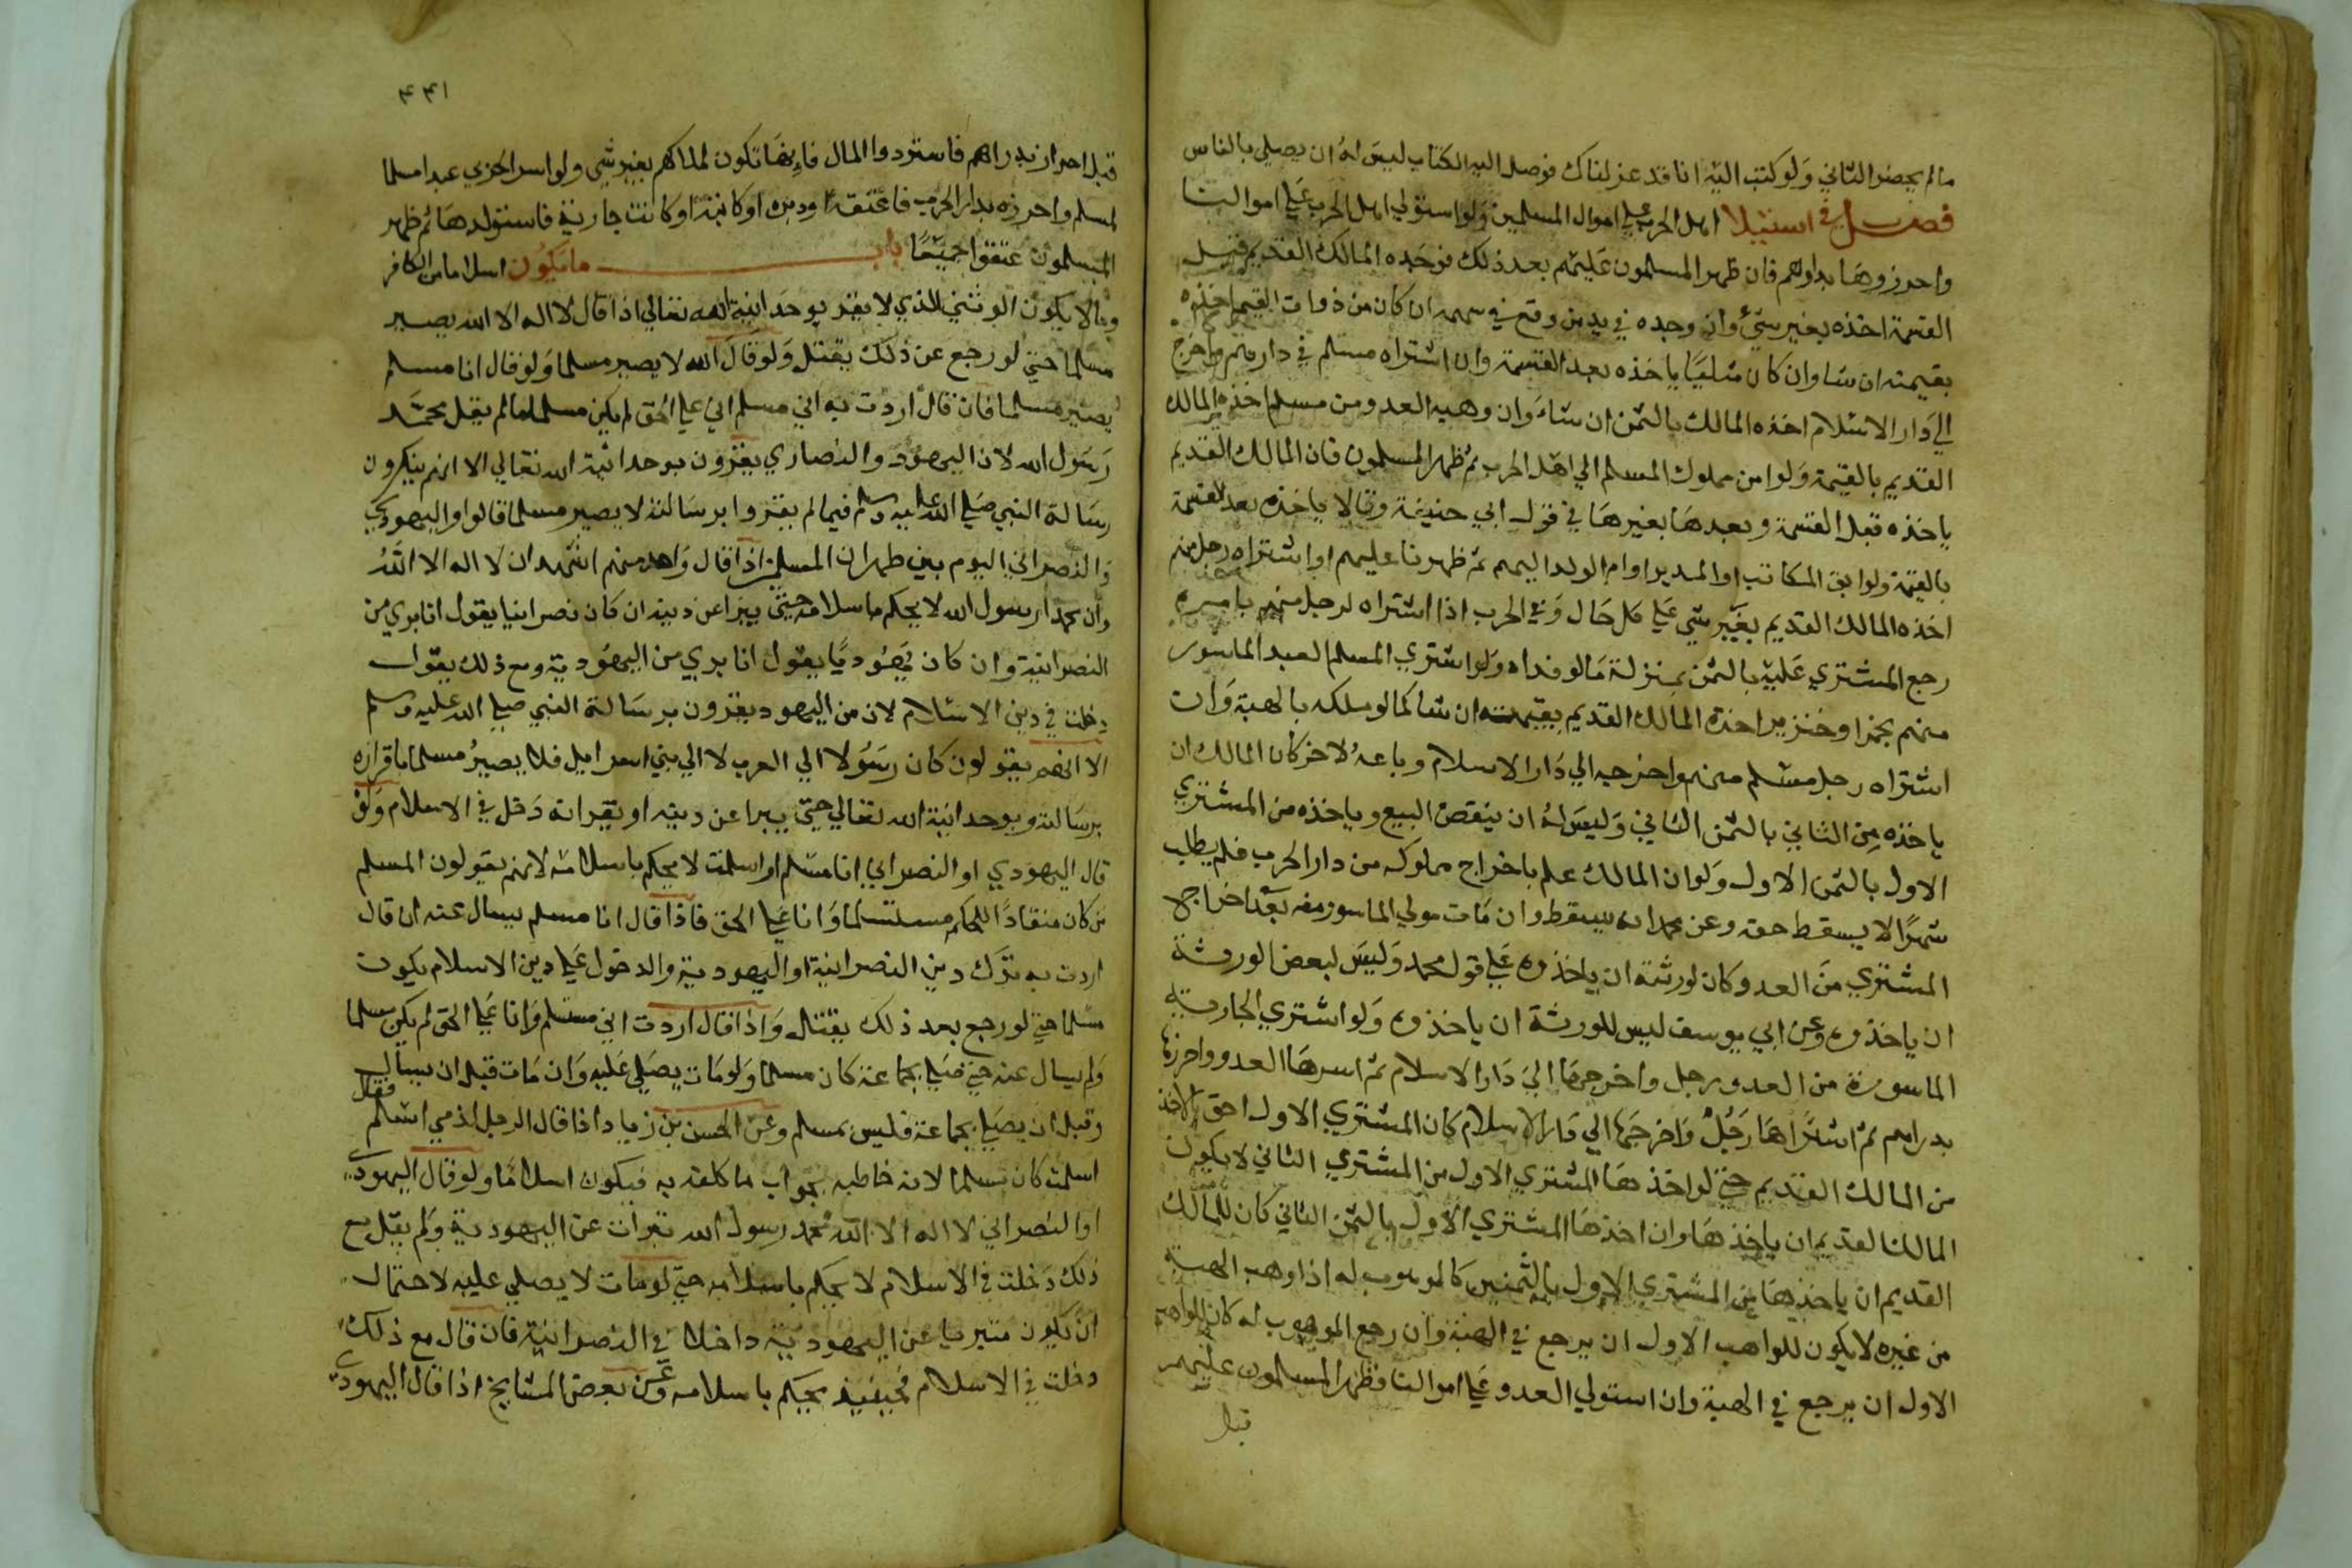 مالم يحضر الثاني ولو كتب اليه انا قد عزلناك فوصل اليه الكتاب ليس له ان يصلي بالناس
فصل في استيلا اهل الحرب علي اموال المسلمين ولو استولي اهل الحرب علي اموالنا
واحرزوها بدارهم فان ظهر المسلمون عليهم بعد ذلك فوجده المالك القديم قبل
القسمة اخذه بغير شيء وان وجده في يد من وقع في سهمه ان كان من ذوات القيم اخذه
بقيمته ان شا وان كان مثليا ياخذه بعد القسمة وان اشتراه مسلم في دارهم واخرج
الي دار الاسلام اخذه المالك بالثمن ان شاء وان وهبه العدو من مسلم اخذه المالك
القديم بالقيمة ولو ابق مملوك المسلم الي اهل الحرب ثم ظهر المسلمون فان المالك القديم
ياخذه قبل القسمة وبعدها بغيرها في قول ابي حنيفة وقالا ياخذه بعد القسمة
بالقيمة ولو ابق المكاتب او المدبر او ام الولد اليهم ثم ظهرنا عليهم او اشتراه رجل منهم
اخذه المالك القديم بغير شي علي كل حال وفي الحرب اذا اشتراه لرجل منهم بامره
رجع المشتري عليه بالثمن بمنزلة مالو فداه ولو اشتري المسلم العبد الماسور
منهم بخمر او خنزير اخذه المالك القديم بقيمته ان شا كما لو ملكه بالهبة وان
اشتراه رجل مسلم منهم واخرجه الي دار الاسلام وباعه لاخر كان المالك ان
ياخذه من الثاني بالثمن الثاني وليس له ان ينقض البيع وياخذه من المشتري
الاول بالثمن الاول ولو ان المالك علم باخراج مملوكه من دار الحرب فلم يطلب
شهرا لا يسقط حقه وعن محمد انه يسقط وان مات مولي الماسور منه بعد اخراج
المشتري من العدو كان لورثته ان ياخذوه علي قول محمد وليس لبعض الورثة
ان ياخذوه وعن ابي يوسف ليس للورثة ان ياخذوه ولو اشتري الجارية
الماسورة من العدو رجل واخرجها الي دار الاسلام ثم اسرها العدو واحرزها
بدراهم ثم اشتراها رجل واخرجها الي دار الاسلام كان المشتري الاول احق بالاخذ
من المالك القديم حتي لو اخذها المشتري الاول من المشتري الثاني لا يكون
المالك القديم ان ياخذها وان اخذها المشتري الاول بالثمن الثاني كان للمالك
القديم ان ياخذها من المشتري الاول بالثمنين كالموهوب له اذا وهب الهبة
من غيره لا يكون للواهب الاول ان يرجع في الهبة وان رجع الموهوب له كان للواهب
الاول ان يرجع في الهبة وان استولي العدو علي اموالنا فظهر المسلمون عليهم
قبل
٤٤١
قبل احراز بدراهم فاستردوا المال فانها تكون لملاكهم بغير شي ولو اسر الحربي عبدا مسلما
لمسلم واحرزه بدار الحرب فاعتقه او دبره او كاتبه او كانت جارية فاستولدها ثم ظهر
المسلمون عتقوا جميعا باب ما يكون اسلاما من الكافر
ومالا يكون الوثني الذي لا يقر بوحدانية الله تعالي اذا قال لا اله الا الله يصير
مسلما حتي لو رجع عن ذلك يقتل ولو قال الله لا يصير مسلما ولو قال انا مسلم
يصير مسلما فان قال اردت به اني مسلم اني علي الحق لم يكن مسلما مالم يقل محمد
رسول الله لان اليهود والنصاري يقرون بوحدانية الله تعالي الا انهم ينكرون
رسالة النبي صلي الله عليه وسلم فيما لم يقروا برسالته لا يصير مسلما قالوا واليهودي
والنصراني اليوم بين ظهران المسلمين اذا قال واحد منهم اشهد ان لا اله الا الله
وان محمدا رسول الله لا يحكم باسلامه حتي يبرا عن دينه ان كان نصرانيا يقول انا بري من
النصرانية وان كان يهوديا يقول انا بري من اليهودية ومع ذلك يقول
دخلت في دين الاسلام لان من اليهود يقرون برسالة النبي صلي الله عليه وسلم
الا انهم يقولون كان رسولا الي العرب لا الي بني اسرايل فلا يصير مسلما باقراره
برسالته وبوحدانية الله تعالي حتي يبرا عن دينه او يقر انه دخل في الاسلام ولو
قال اليهودي او النصراني انا مسلم او اسلمت لا يحكم باسلامه لانهم يقولون المسلم
من كان منقادا للحكم مستسلما وانا علي الحق فاذا قال انا مسلم يسال عنه ان قال
اردت به ترك دين النصرانية او اليهودية والدخول علي دين الاسلام يكون
مسلما حتي لو رجع بعد ذلك يقتل واذا قال اردت اني مستسلم وانا علي الحق لم يكن مسلما
ولم يسال عنه حتي صلي بجماعة كان مسلما ولو مات يصلي عليه وان مات قبل ان يسال
وقبل ان يصلي بجماعة فليس بمسلم وعن الحسن بن زياد اذا قال الرجل لذمي اسلم فقال
اسلمت كان مسلما لانه خاطبه بجواب ما كلفه به فيكون اسلاما ولو قال اليهودي
او النصراني لا اله الا الله محمد رسول الله تبرات عن اليهودية ولم يقل مع
ذلك دخلت في الاسلام لا يحكم باسلامه حتي لو مات لا يصلي عليه لاحتمال
ان يكون متبريا عن اليهودية داخلا في النصرانية فان قال مع ذلك
دخلت في الاسلام فحينيذ يحكم باسلامه وعن بعض المشايخ اذا قال اليهودي